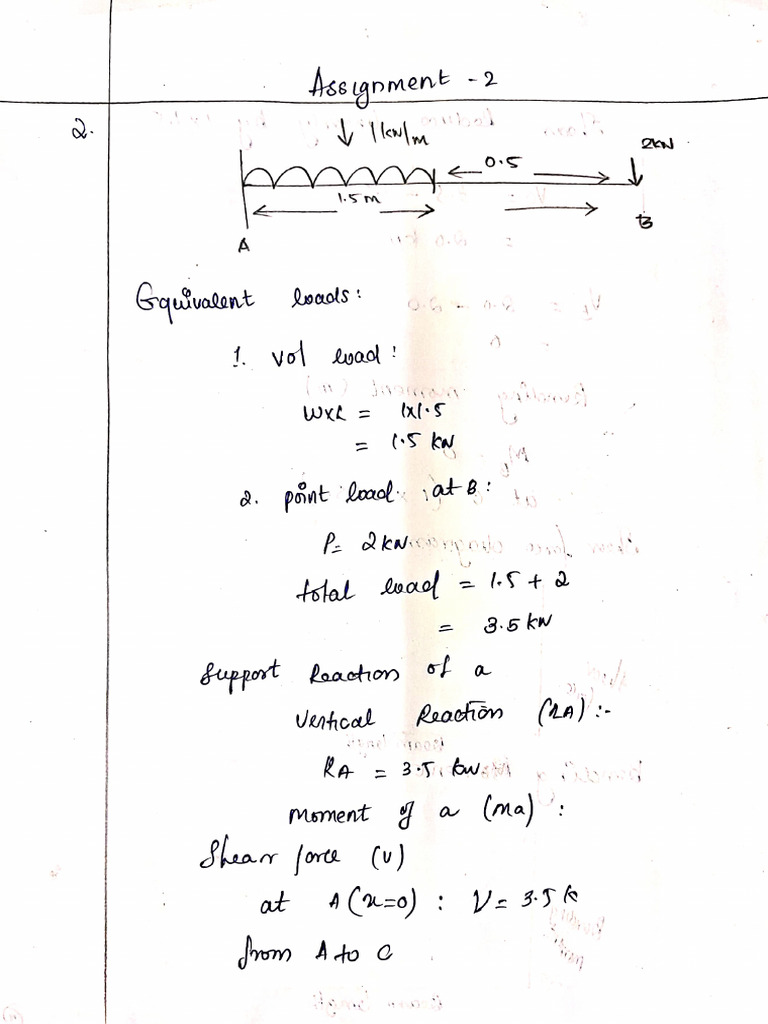 Assignment - 2
2.
1 kN/m
2kN
0.5
1.5 m
A
B
Equivalent loads:
1. Vol load:
W×L = 1×1.5
= 1.5 kN
2. point load at B:
P = 2 kN
total load = 1.5 + 2
= 3.5 kN
Support Reaction of a
Vertical Reaction (RA) :-
RA = 3.5 kN
Moment of a (Ma) :
Shear force (V)
at A (x=0) : V = 3.5 k
from A to C